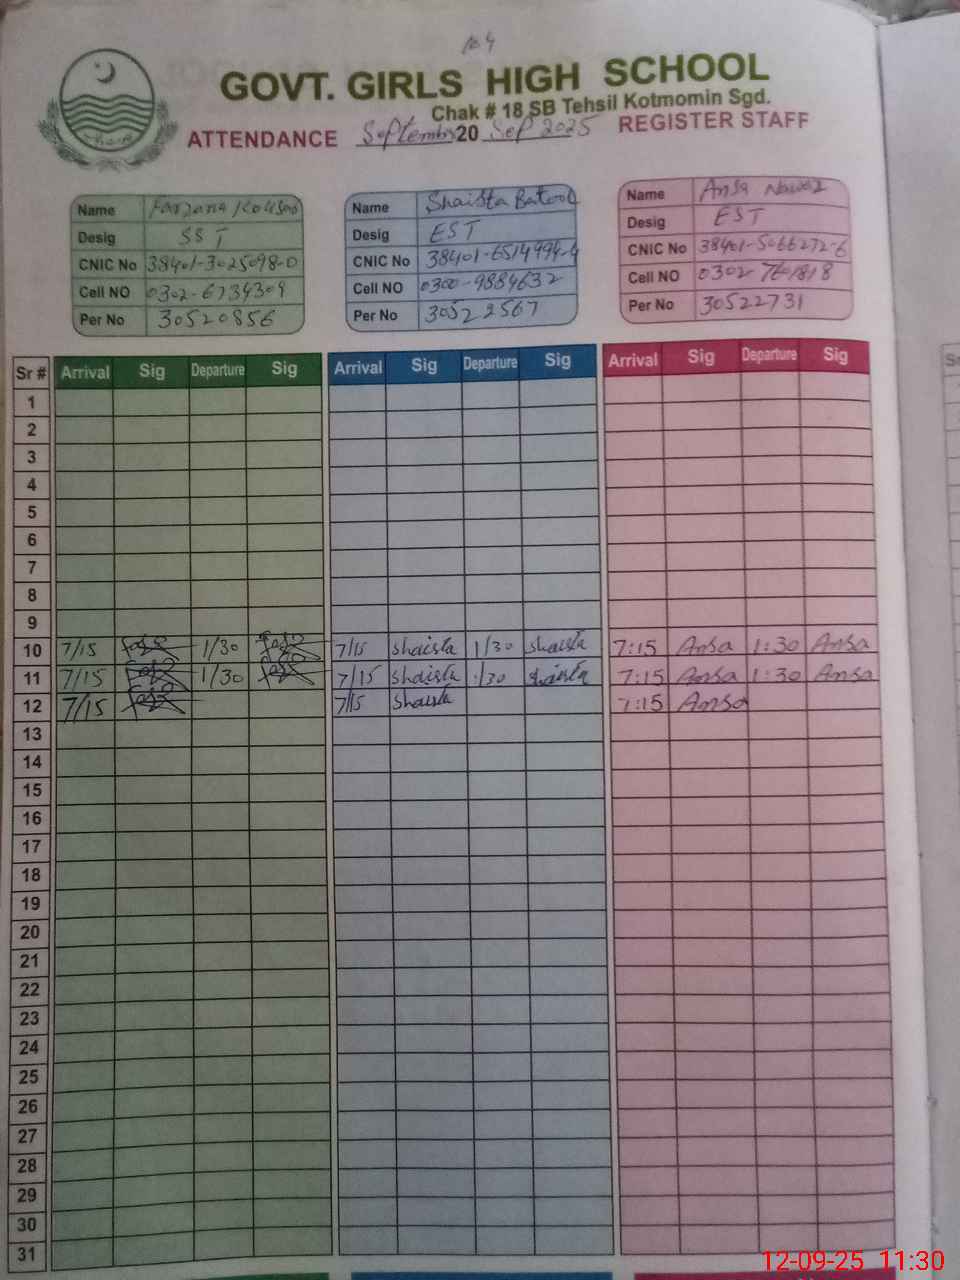 GOVT. GIRLS HIGH SCHOOL
Chak # 18 SB Tehsil Kotmomin Sgd.
ATTENDANCE September 20 Sep 2025 REGISTER STAFF
Name Farzana Kousar
Desig SST
CNIC No 38401-3025098-0
Cell NO 0302-6734309
Per No 30520856
Name Shaista Batool
Desig EST
CNIC No 38401-6514994-4
Cell NO 0300-9884632
Per No 30522567
Name Ansa Nawaz
Desig EST
CNIC No 38401-5066272-6
Cell NO 0302-7601818
Per No 30522731
Sr # Arrival Sig Departure Sig Arrival Sig Departure Sig Arrival Sig Departure Sig
1
2
3
4
5
6
7
8
9
10 7/15 1/30 7/15 Shaista 1/30 Shaista 7:15 Ansa 1:30 Ansa
11 7/15 1/30 7/15 Shaista 1/30 Shaista 7:15 Ansa 1:30 Ansa
12 7/15 7/15 Shaista 7:15 Ansa
13
14
15
16
17
18
19
20
21
22
23
24
25
26
27
28
29
30
31
12-09-25 11:30